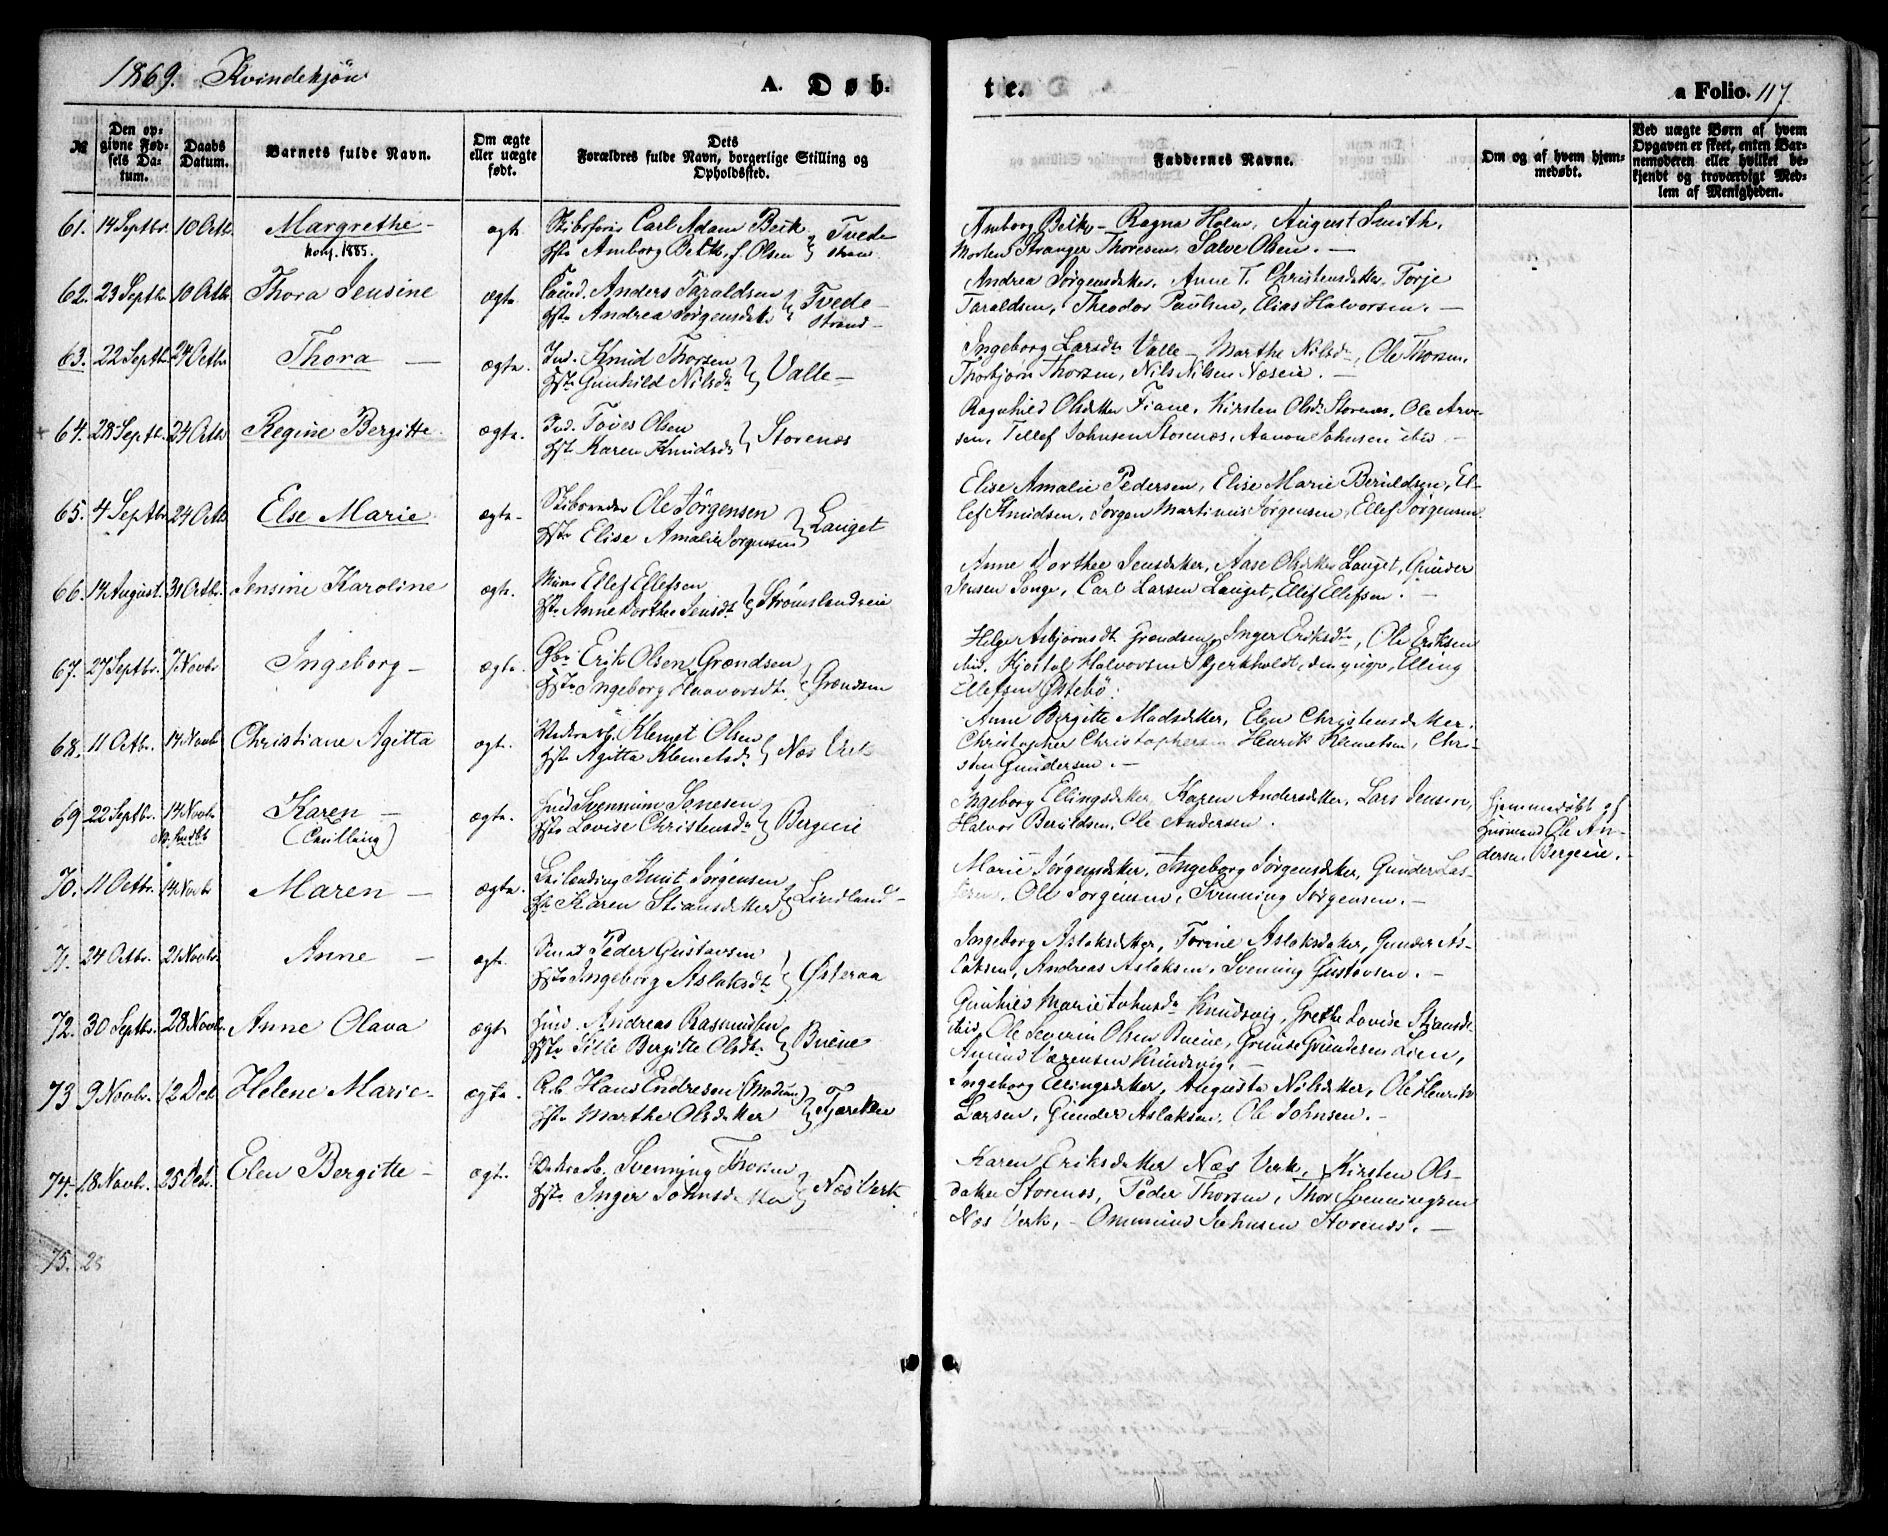 1869. Kvindekjön
A. Døb.
te.
a Folio. 117
№
Den opgivne Fødsels Datum.
Daabs Datum.
Barnets fulde Navn.
Om ægte eller uægte født.
Dets Forældres fulde Navn, borgerlige Stilling og Opholdssted.
Faddernes Navne.
Om og af hvem hjemmedøbt.
Ved uægte Børn af hvem Opgaven er skeet, enten Barnemoderen eller hvilket bekjendt og troværdigt Medlem af Menigheden.
61. 14 Septbr. 10 Octb. Margrethe - ægte Carl Adam Beck
1885. Hst. Amborg Beck, f. Olsen } Tvedestrand
Amborg Beck - Ragna Holm, August Smith,
Morten Stranger Thoresen, Salve Olsen. -
62. 23 Septb. 10 Octb. Thora Jensine ægte. Anders Taraldsen
Hst. Andrea Jørgensdt. } Tvedestrand -
Andrea Jørgensdatter, Anne T. Christensdatter, Torje
Taraldsen, Theodor Paulsen, Elias Halvorsen. -
63. 22 Septb. 24 Octbr. Thora - ægte. Ind. Knud Thorsen
Hst. Gunhild Nilsdt. } Valle -
Ingeborg Larsdt. Valle - Marthe Nilsdt., Ole Thorsen,
Thorbjørn Thorsen, Nils Nilsen Næseie. -
64. 28 Septb. 24 Octb. Regine Bergitte. ægte. Ind. Toves Olsen
Hst. Karen Knudsdt. } Storenæs
Ragnhild Olsdatter Fiane, Kirsten Olsdt. Storenæs, Ole Arvesen,
Tellef Johnsen Storenæs, Aanon Johnsen ibid -
65. 4 Septbr. 24 Octb. Else Marie. ægte. Ole Jørgensen
Hst. Elise Amalie Jørgensen } Lauget
Elise Amalie Pedersen, Elise Marie Beruldsen, Ellef
Knudsen, Jørgen Martinus Jørgensen, Ellef Jørgensen.
66. 14 August. 31 Octbr. Jensine Karoline ægte. Ellef Ellefsen
Hst. Anne Dorthe Jensdt. } Strømslandseie
Anne Dorthee Jensdatter, Aase Olsdatter Lauget, Gunder
Jensen Songe, Carl Larsen Lauget, Ellef Ellefsen. -
67. 27 Septbr. 7 Novbr Ingeborg - ægte. Gbr. Erik Olsen Grændsen
Hst. Ingeborg Haavorsdt. } Grændsen
Helge Asbjørnsdt. Grændsen, Inger Eriksdt., Ole Eriksen
ibid. Kjøstol Halvorsen Skjerkholdt, den yngre, Elling
Ellefsen Østebö.
68. 11 Octbr. 14 Novb Christiane Agitta ægt. Klemet Olsen
Hst. Agitta Klemetsdt. } Næs Verk
Anne Bergitte Madsdatter, Elen Christensdatter,
Christopher Christophersen Henrik Klemetsen, Christen
Gundersen. -
69 22 Septbr. 14 Novbr Karen - ægte. Ind Svennum Jensen
(Tvilling) Hst. Lovise Christensdt. } Bergeeie
Ingeborg Ellingsdatter, Karen Andersdatter, Lars Jensen,
Halvor Beruldsen, Ole Andersen.
Hjemmedøbt af
Husmand Ole Andersen
Bergeeie. -
70. 11 Octbr. 14 Novbr Maren - ægte. Leilænding Knut Jørgensen
Hst. Karen Stiansdatter } Lindland -
Marie Jørgensdatter, Ingeborg Jørgensdatter, Gunder
Ole Jørgensen, Svenning Jørgensen. -
71. 24 Octbr. 21 Novbr. Anne - ægte. Peder Gustavsen
Hst. Ingeborg Aslaksdt. } Østeraa
Ingeborg Aslaksdatter, Torine Aslaksdatter, Gunder Aslaksen,
Andreas Aslaksen, Svening Gustavsen. -
72. 30 Septbr. 28 Novbr. Anne Olava ægt. Ind. Andreas Rasmusen
Hst. Sille Bergitte Olsdt. } Bueie
Gunhild Marie Johnsdt. Knudsvig, Grethe Lovise Stiansdt.
ibid, Ole Severin Olsen Bueie, Gunder Lien,
Knudsvig. -
73 9 Novbr. 12 Deb Helene Marie - ægte. Hans Endresen (Modum)
Hst. Marthe Olsdatter } Tjærekleiv
Ingeborg Ellingsdatter, Augusta Nilsdatter, Ole Henrik
Larsen, Gunder Aslaksen, Ole Johnsen. -
74. 18 Novbr. 25 Deb. Elen Bergitte - ægte. Svenning Thorsen
Hst. Inger Johnsdatter } Næs Verk
Karen Eriksdatter Næs Verk, Kirsten Olsdatter
Storenæs, Peder Thorsen, Thor Svenningsen
Næs Verk, - Ommund Johnsen Storenæs. -
75. 28